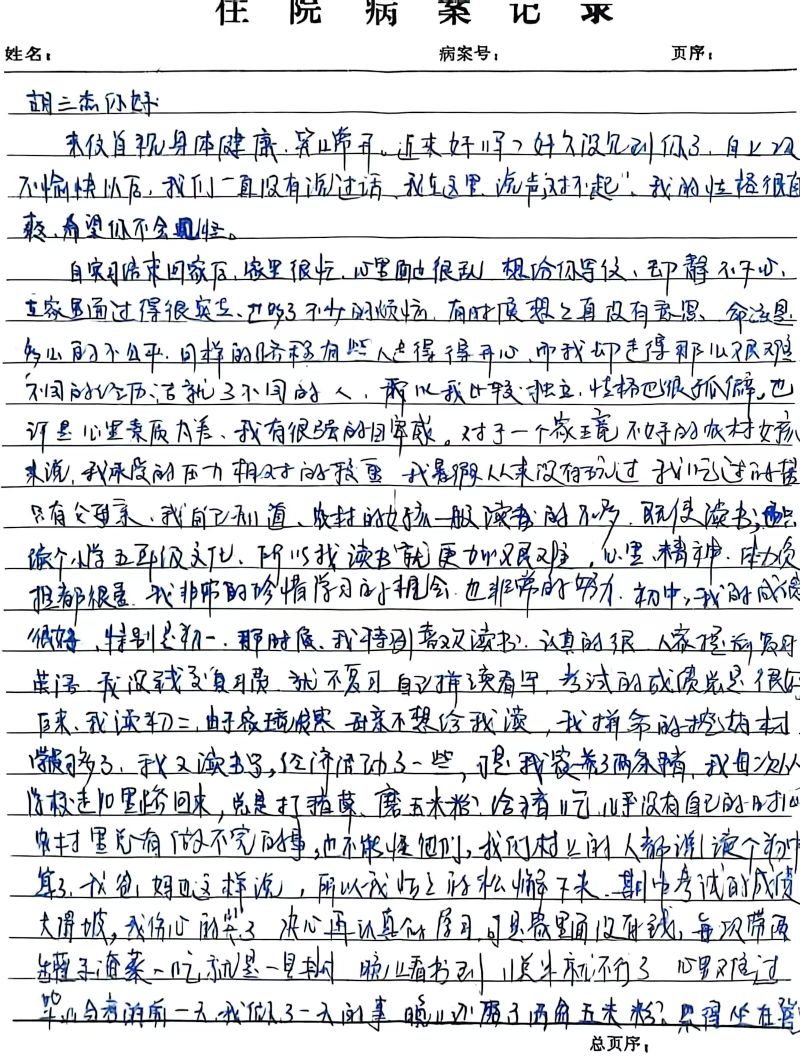 住院病案记录
姓名： 病案号： 页序：
胡三杰你好
来仪首祝身体健康，笑口常开。近来好吗？好久没见到你了，自上次
不愉快以后，我们一直没有说过话，我在这里说声“对不起”，我的性格很自
爽，希望你不会怪。
自实习结束回家后，家里很忙，心里面也很乱 想给你写信，却静不下心，
在家里面过得很 ，也 了不少的烦恼，有时候想想真没有意思，命运是
多么的不公平，同样的路程有些人走得得开心，而我却走得那么艰难
不同的经历造就了不同的人，所以我比较独立，性格也很孤僻，也
许是心里素质太差，我有很强的自卑感。对于一个家境不好的农村女孩
来说，我承受的压力相对的较重 我暑假从来没有玩过 我吃过的苦
只有父母亲、我自己知道、农村的女孩一般读书的不多，既使读书，也只
读个小学五年级文化，所以我读书就更加艰难，心里、精神、体力负
担都很重 我非常的珍惜学习的机会 也非常的努力 初中，我的成绩
很好，特别是初一，那时候，我特别喜欢读书，认真的很 人家提前复习
英语 我没钱交复习费 就不复习 自己拼读看写，考试的成绩总是很好
后来，我读初二，由于家境 母亲不想给我读，我拼命的挖
多了，我又读书了，经济活动了一些，可是我家养了两条猪，我每次从
学校走10里路回来，总是打猪草、磨玉米粉？给猪吃，几乎没有自己的时间
农村里总有做不完的事，也不能怪他们，我们村上的人都说读个初中
算了，我爸，妈也这样说，所以我慢慢的松懈下来 期中考试的成绩
大滑坡，我伤心的哭了 决心再认真的学习，可是家里面没有钱，每次带
罐子酸菜一吃就是一星期 晚上看书到 就不行了 心里难过
毕业会考的前一天，我做了一天的事 晚上还磨了两 玉米粉？只得坐在
总页序：